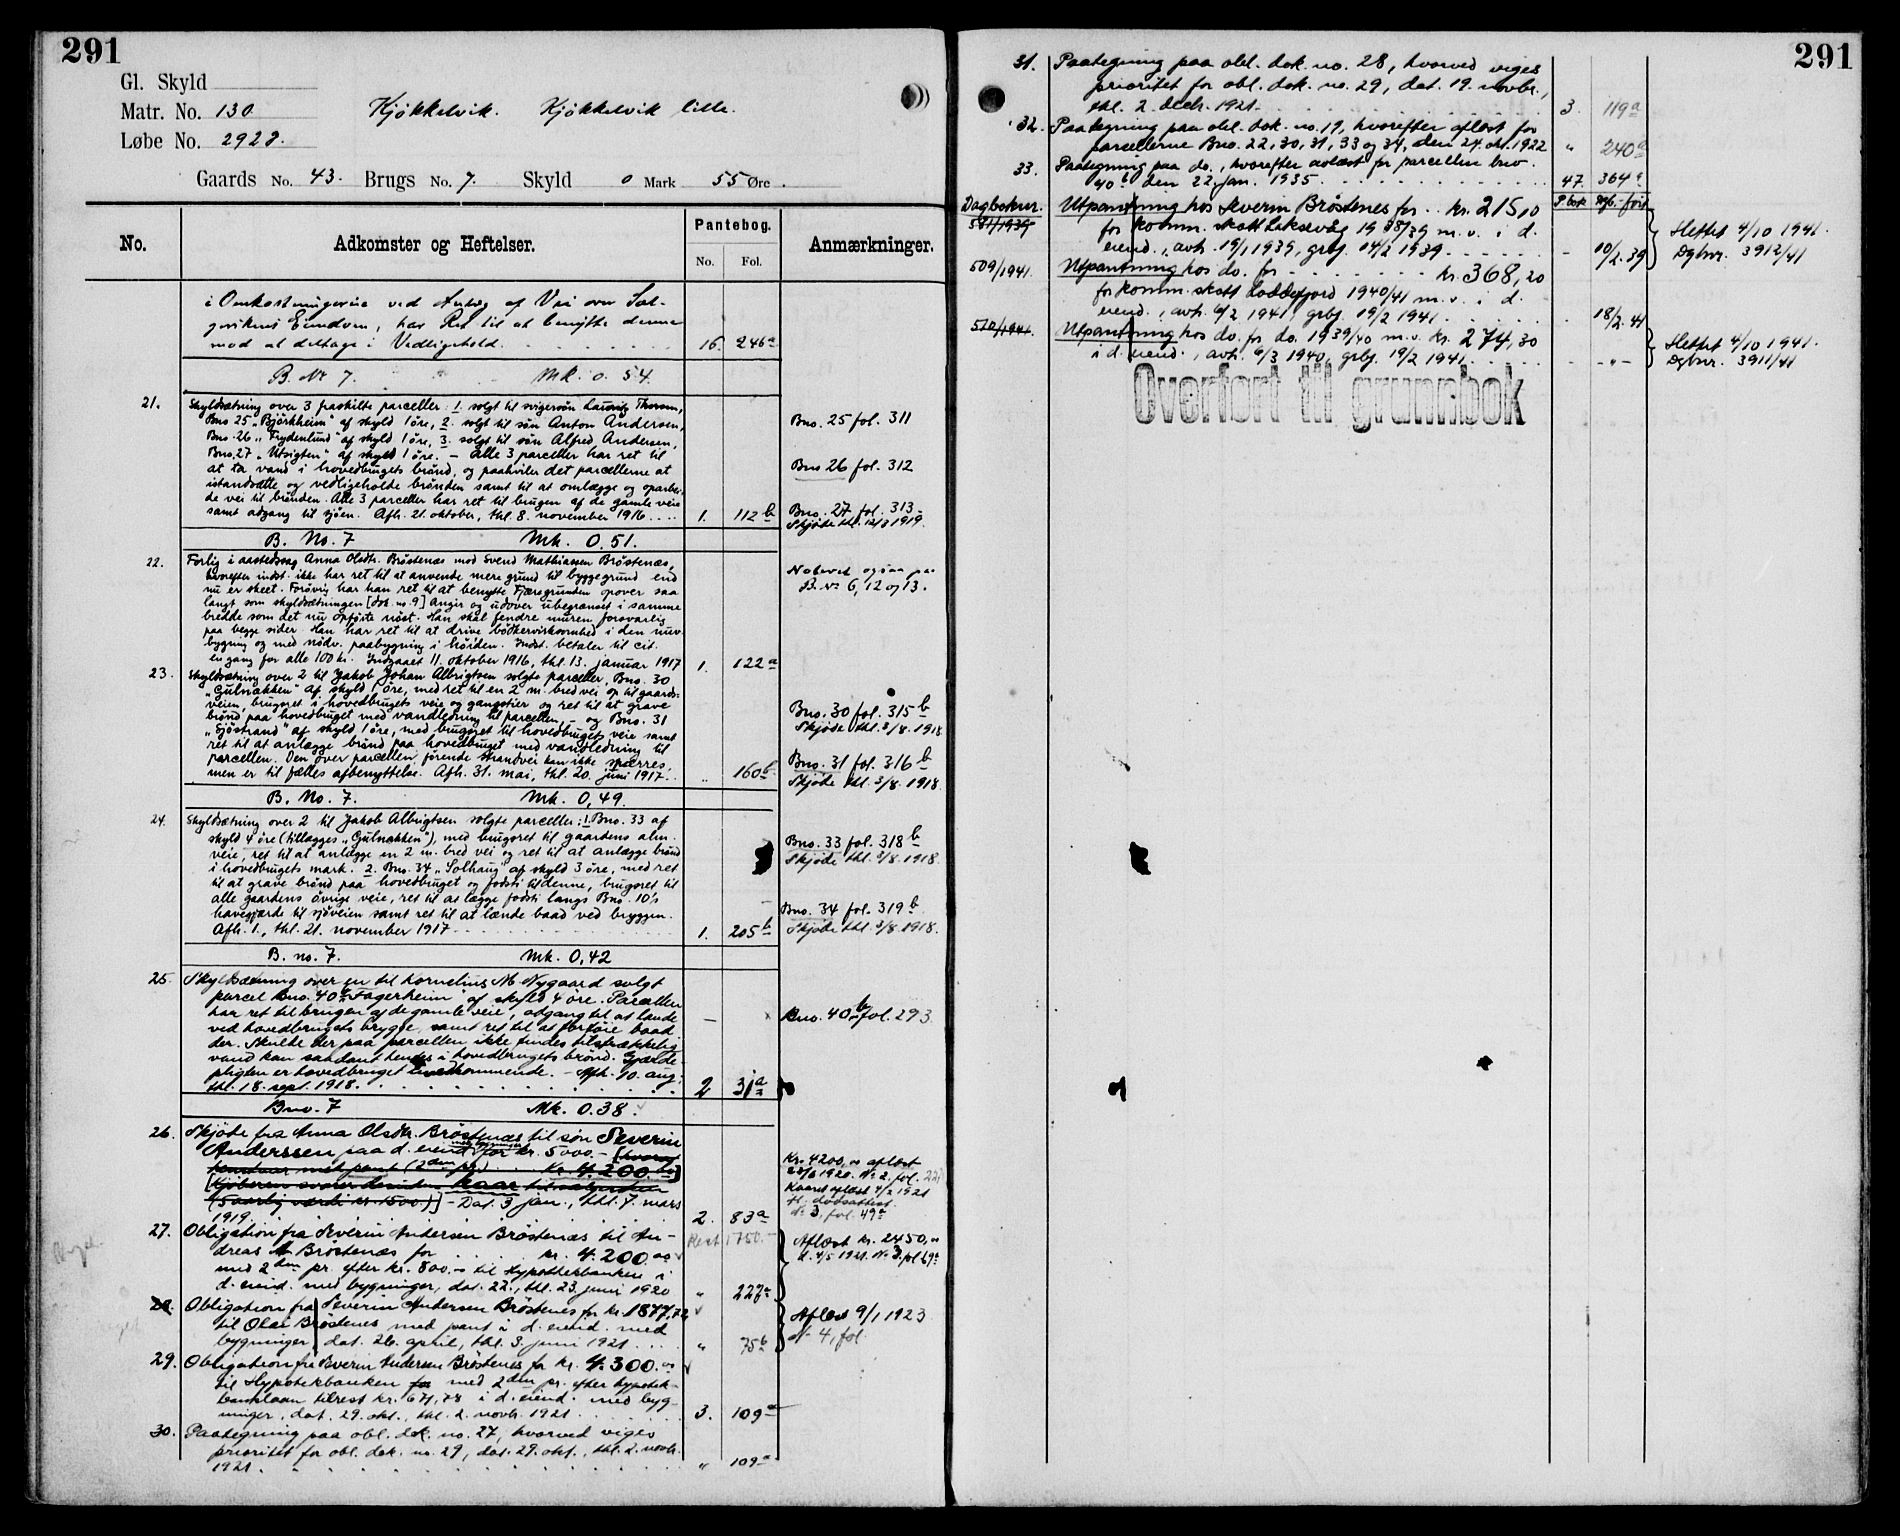 291
Gl. Skyld
Matr. No. 130 Kjøkkelvik. Kjøkkelvik lille.
Løbe No. 292
Gaards No. 43. Brugs No. 7. Skyld 0 Mark 55 Øre.
No. Adkomster og Heftelser. Pantebog. Anmærkninger.
No. Fol.
i Omkostningerne ved Anlæg af Vei over Sol-
, har Ret til at benytte denne
mod at deltage i Vedligehold. 16. 246a
B. No 7. Mk. 0.54.
21. Skyldsætning over 3 fraskilte parceller: 1. solgt til svigersøn Lauritz Thorsen,
Bno 25 "Bjørkheim" af skyld 1 øre, 2. solgt til søn Anton Andersen, Bno. 25 fol. 311
Bno. 26 "Frydenlund" af skyld 1 øre, 3. solgt til søn Alfred Andersen,
Bno. 27 "Utsigten" af skyld 1 øre. – Alle 3 parceller har ret til
at ta vand i hovedbrugets brønd, og paahviler det parcellerne at Bno 26 fol. 312
istandsætte og vedligeholde brønden samt til at omlægge og oparbei-
de vei til brønden. Alle 3 parceller har ret til brugen af de gamle veie Bno. 27 fol. 313.
samt adgang til sjøen. Afh. 21. oktober, thl. 8. november 1916.... 1. 112b Skjøde thl. 12/3 1919.
B. No. 7 Mk. 0.51.
22. Forlig i aastedssag Anna Olsdtr. Brøstenæs mod Svend Mathiassen Brøstenæs,
hvorefter indst. ikke har ret til at anvende mere grund til byggegrund end Noteret ogsaa paa
nu er skeet. Forøvrig har han ret til at benytte Fjæregrunden opover saa B. No 6, 12 og 13.
langt som skyldsætningen [dok. no. 9] angir og udover ubegrænset i samme
bredde som det nu opførte nøst. Han skal fendre muren forsvarlig
paa begge sider. Han har ret til at drive bøtkervirksomhed i den nuv.
bygning og med nødv. paabygning i høiden. Indst. betaler til cit.
en gang for alle 100 kr. Indgaaet 11. oktober 1916, thl. 13. januar 1917 1. 122a
23. Skyldsætning over 2 til Jakob Johan Albrigtsen solgte parceller, Bno. 30
"Gulnakken" af skyld 1 øre, med ret til en 2 m. bred vei op til gaards-
veien, brugsret i hovedbrugets veie og gangstier og ret til at grave Bno. 30 fol. 315b
brønd paa hovedbruget med vandledning til parcellen, – og Bno. 31 Skjøde thl. 3/8. 1918
"Sjøstrand" af skyld 1 øre, med brugsret til hovedbrugets veie samt
ret til at anlægge brønd paa hovedbruget med vandledning til
parcellen. Den over parcellen førende strandvei kan ikke spærres, Bno. 31 fol. 316b
men er til fælles afbenyttelse. Afh. 31. mai, thl. 20. juni 1917... " 160b Skjøde thl. 3/8. 1918.
B. No. 7. Mk. 0,49.
24. Skyldsætning over 2 til Jakob Albrigtsen solgte parceller: 1. Bno. 33 af
skyld 4 øre (tillægges "Gulnakken"), med brugsret til gaardens alm. Bno. 33 fol. 318b
veie, ret til at anlægge en 2 m. bred vei og ret til at anlægge brønd Skjøde thl. 3/8. 1918.
i hovedbrugets mark. 2. Bno. 34 "Solhaug" af skyld 3 øre, med ret
til at grave brønd paa hovedbruget og fodsti til denne, brugsret til
alle gaardens øvrige veie, ret til at lægge fodsti langs Bno. 10's
havegjærde til sjøveien samt ret til at lænde baad ved bryggen. Bno. 34 fol. 319b.
Afh. 1., thl. 21. november 1917 1. 205b Skjøde thl. 3/8. 1918.
B. no. 7. Mk. 0,42
25. Skyldsætning over en til Kornelius M. Nygaard solgt
parcel Bno. 40b "Fagerheim" af skyld 4 øre. Parcellen
har ret til brugen af de gamle veie, adgang til at lande Bno. 40b fol. 293.
ved hovedbrugets brygge, samt ret til at fortøie baad
der. Skulde der paa parcellen ikke findes tilstrækkelig
vand kan saadant hentes i hovedbrugets brønd. Gjærde-
pligten er hovedbruget uvedkommende. – Afh. 10. aug.,
thl. 18. sept. 1918. 2 31a
Bno. 7 Mk. 0.38.
26. Skjøde fra Anna Olsdtr. Brøstenæs til søn Severin
Anderssen paa d. eiend. med bygninger for kr. 5000.– [hvoraf
henstaar mot pant (2den pr.) Kr. 4.200.00] Kr. 4200,00 aflæst
[Kjøberen svarer desuden kaar til sælgersken 1920. No 2. fol. 227
(5 aarlig værdi kr. 1500.)] – Dat. 3 jan., thl. 7. mars Kaaret aflæst 4/2 1921
1919. 2. 83a No 3, fol. 49a
27. Obligation fra Severin Andersen Brøstenæs til An- Rest 1750.–
dreas M. Brøstenæs for kr. 4.200.00 Aflæst kr. 2450,00
med 2den pr. efter kr. 800.– til Hypothekbanken i d. 4/5 1921. No 3, fol 69a
d. eiend. med bygninger, dat. 22., thl. 23. juni 1920 " 227a
28. Obligation fra Severin Andersen Brøstenes for kr. 1877,72
til Olai Brøstenes med pant i d. eiend. med Aflæst 9/1 1923
bygninger, dat. 26. april, thl. 3. juni 1921.... " 75b No 4, fol.
29. Obligation fra Severin Andersen Brøstenes for kr. 4.300.00
til Hypotekbanken for med 2den pr. efter hypotek-
banklaan tilrest kr. 671,78 i d. eiend. med byg-
ninger, dat. 29. okt., thl. 2. novb. 1921. 3. 109a
30. Paategning paa obl. dok. no. 27, hvorved viges
prioritet for obl. dok. no. 29, dat. 29. okt., thl. 2. novb.
1921. " 109a
291
31. Paategning paa obl. dok. no. 28, hvorved viges
prioritet for obl. dok. no. 29, dat. 19. novbr.,
thl. 2. decb. 1921. 3. 119a
32. Paategning paa obl. dok. no. 19, hvorefter aflæst for
parcellerne Bno. 22, 30, 31, 33 og 34, den 24. okt. 1922 " 240a
33. Paategning paa do., hvorefter avlæst for parcellen bno.
40b den 22. jan. 1935. 47. 364a
Dagboknr. Utpantning hos Severin Brøstenes for kr. 215,10 P.bok
581/1939 for komm. skatt Laksevåg 1938/39 m.v. i d. Slettet 4/10 1941.
eiend., avh. 19/1 1939, grbf. 14/2 1939 – 10/2.39 Dgbnr. 3912/41
509/1941. Utpantning hos do. for kr. 368,20
for komm. skatt Loddefjord 1940/41 m.v. i d.
eiend., avh. 6/2 1941, grbf. 19/2 1941. 18/2.41
510/1941. Utpantning hos do. for do. 1939/40 m.v. kr. 274,30 Slettet 4/10 1941.
i d. eiend., avh. 6/3 1940, grbf. 19/2 1941. – " – Dgbnr. 3911/41
Overført til grunnbok